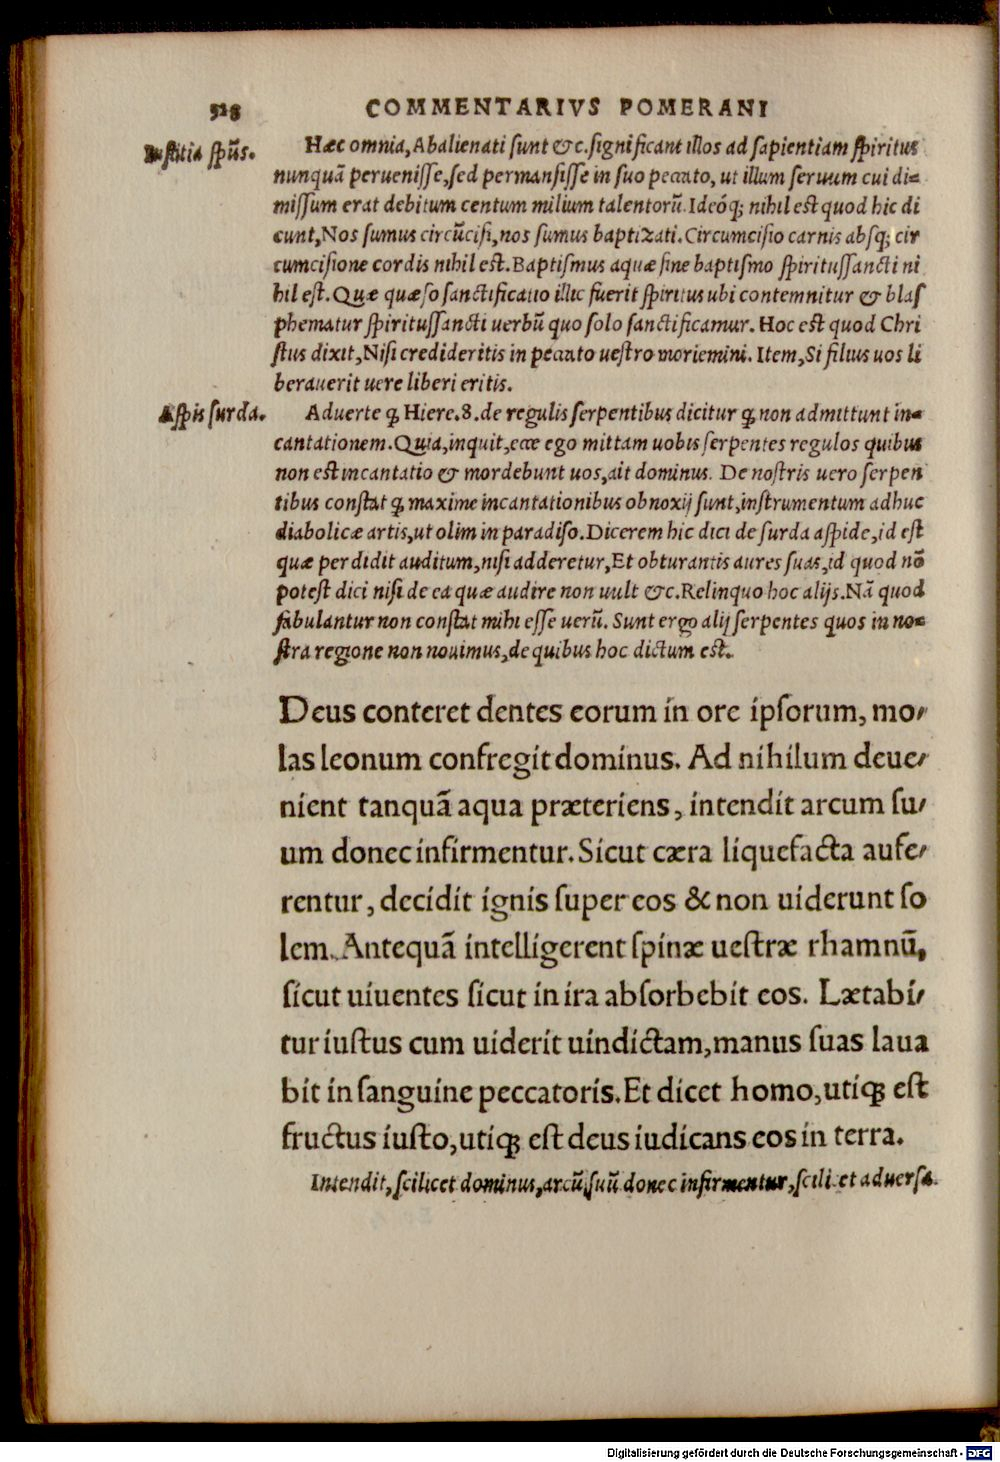 328 COMMENTARIVS POMERANI
Iustitia spūs.
Hæc omnia, Abalienati sunt &c. significant illos ad sapientiam spiritus
nunquā peruenisse, sed permansisse in suo peccato, ut illum seruum cui di-
missum erat debitum centum milium talentorū. Ideóq; nihil est quod hic di
cunt, Nos sumus circūcisi, nos sumus baptizati. Circumcisio carnis absq; cir
cumcisione cordis nihil est. Baptismus aquæ sine baptismo spiritussancti ni
hil est. Quæ quæso sanctificatio illic fuerit spiritus ubi contemnitur & blas
phematur spiritussancti uerbū quo solo sanctificamur. Hoc est quod Chri
stus dixit, Nisi credideritis in peccato uestro moriemini. Item, Si filius uos li
berauerit uere liberi eritis.
Aspis surda.
Aduerte ꝙ Hiere. 8. de regulis serpentibus dicitur ꝙ non admittunt in-
cantationem. Quia, inquit, ecce ego mittam uobis serpentes regulos quibus
non est incantatio & mordebunt uos, ait dominus. De nostris uero serpen
tibus constat ꝙ maxime incantationibus obnoxij sunt, instrumentum adhuc
diabolicæ artis, ut olim in paradiso. Dicerem hic dici de surda aspide, id est
quæ perdidit auditum, nisi adderetur, Et obturantis aures suas, id quod nō
potest dici nisi de ea quæ audire non uult &c. Relinquo hoc alijs. Nā quod
fabulantur non constat mihi esse uerū. Sunt ergo alij serpentes quos in no-
stra regione non nouimus, de quibus hoc dictum est.
Deus conteret dentes eorum in ore ipsorum, mo-
las leonum confregit dominus. Ad nihilum deue-
nient tanquā aqua præteriens, intendit arcum su-
um donec infirmentur. Sicut cæra liquefacta aufe-
rentur, decidit ignis super eos & non uiderunt so
lem. Antequā intelligerent spinæ uestræ rhamnū,
sicut uiuentes sicut in ira absorbebit eos. Lætabi-
tur iustus cum uiderit uindictam, manus suas laua
bit in sanguine peccatoris. Et dicet homo, utiqꝫ est
fructus iusto, utiqꝫ est deus iudicans eos in terra.
Intendit, scilicet dominus, arcū suū donec infirmentur, scilicet aduersa-
Digitalisierung gefördert durch die Deutsche Forschungsgemeinschaft - DFG